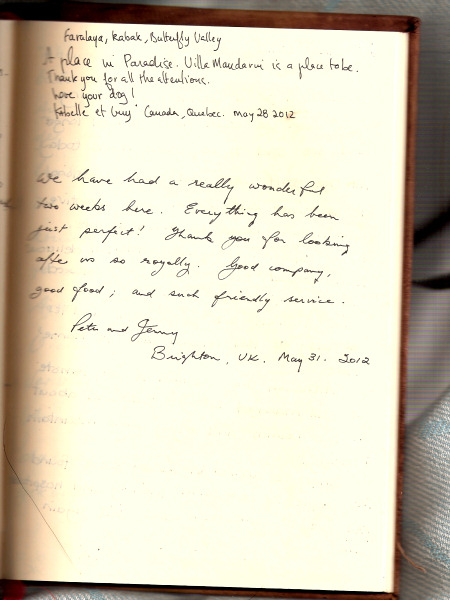 Faralaya, Kabak, Butterfly Valley
A place in Paradise. Villa Mandarin is a place to be.
Thank you for all the attentions.
Love your dog!
et Guy Canada, Quebec. May 28 2012
We have had a really wonderful
two weeks here. Everything has been
just perfect! Thank you for looking
after us so royally. Good company,
good food; and such friendly service.
Peter and Jenny
Brighton, UK. May 31. 2012